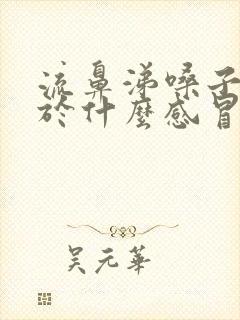 流鼻涕嗓子
於什麼感冒
吴元華